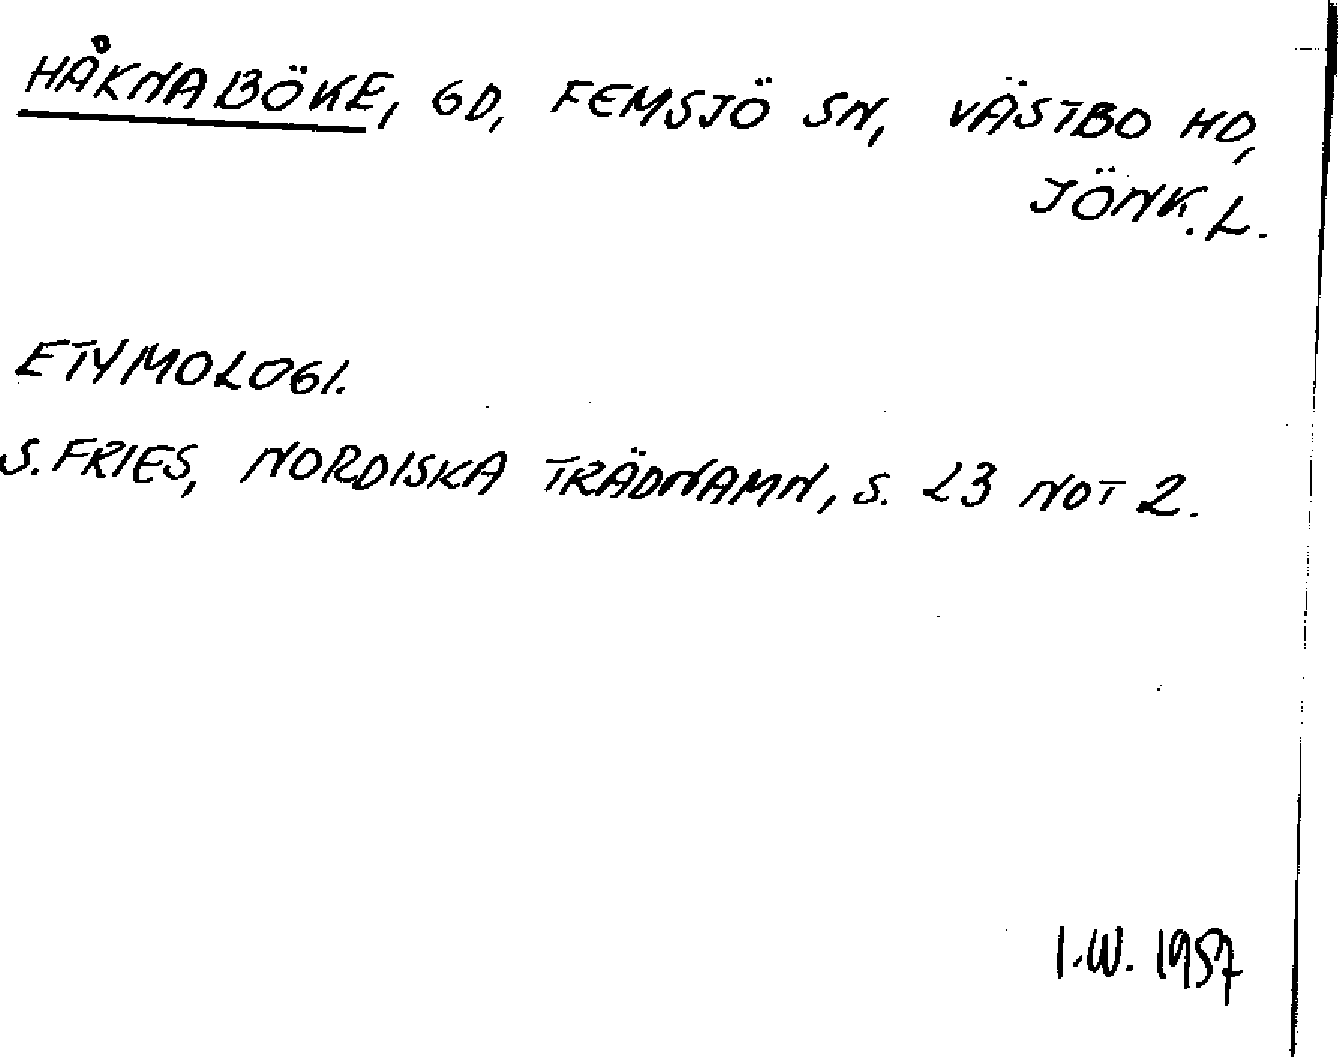 HÅKNABÖKE, GD, FEMSJÖ SN, VÄSTBO HD,
JÖNK. L.
ETYMOLOGI.
S. FRIES, NORDISKA TRÄDNAMN, S. 23 NOT 2.
I.W. 1957